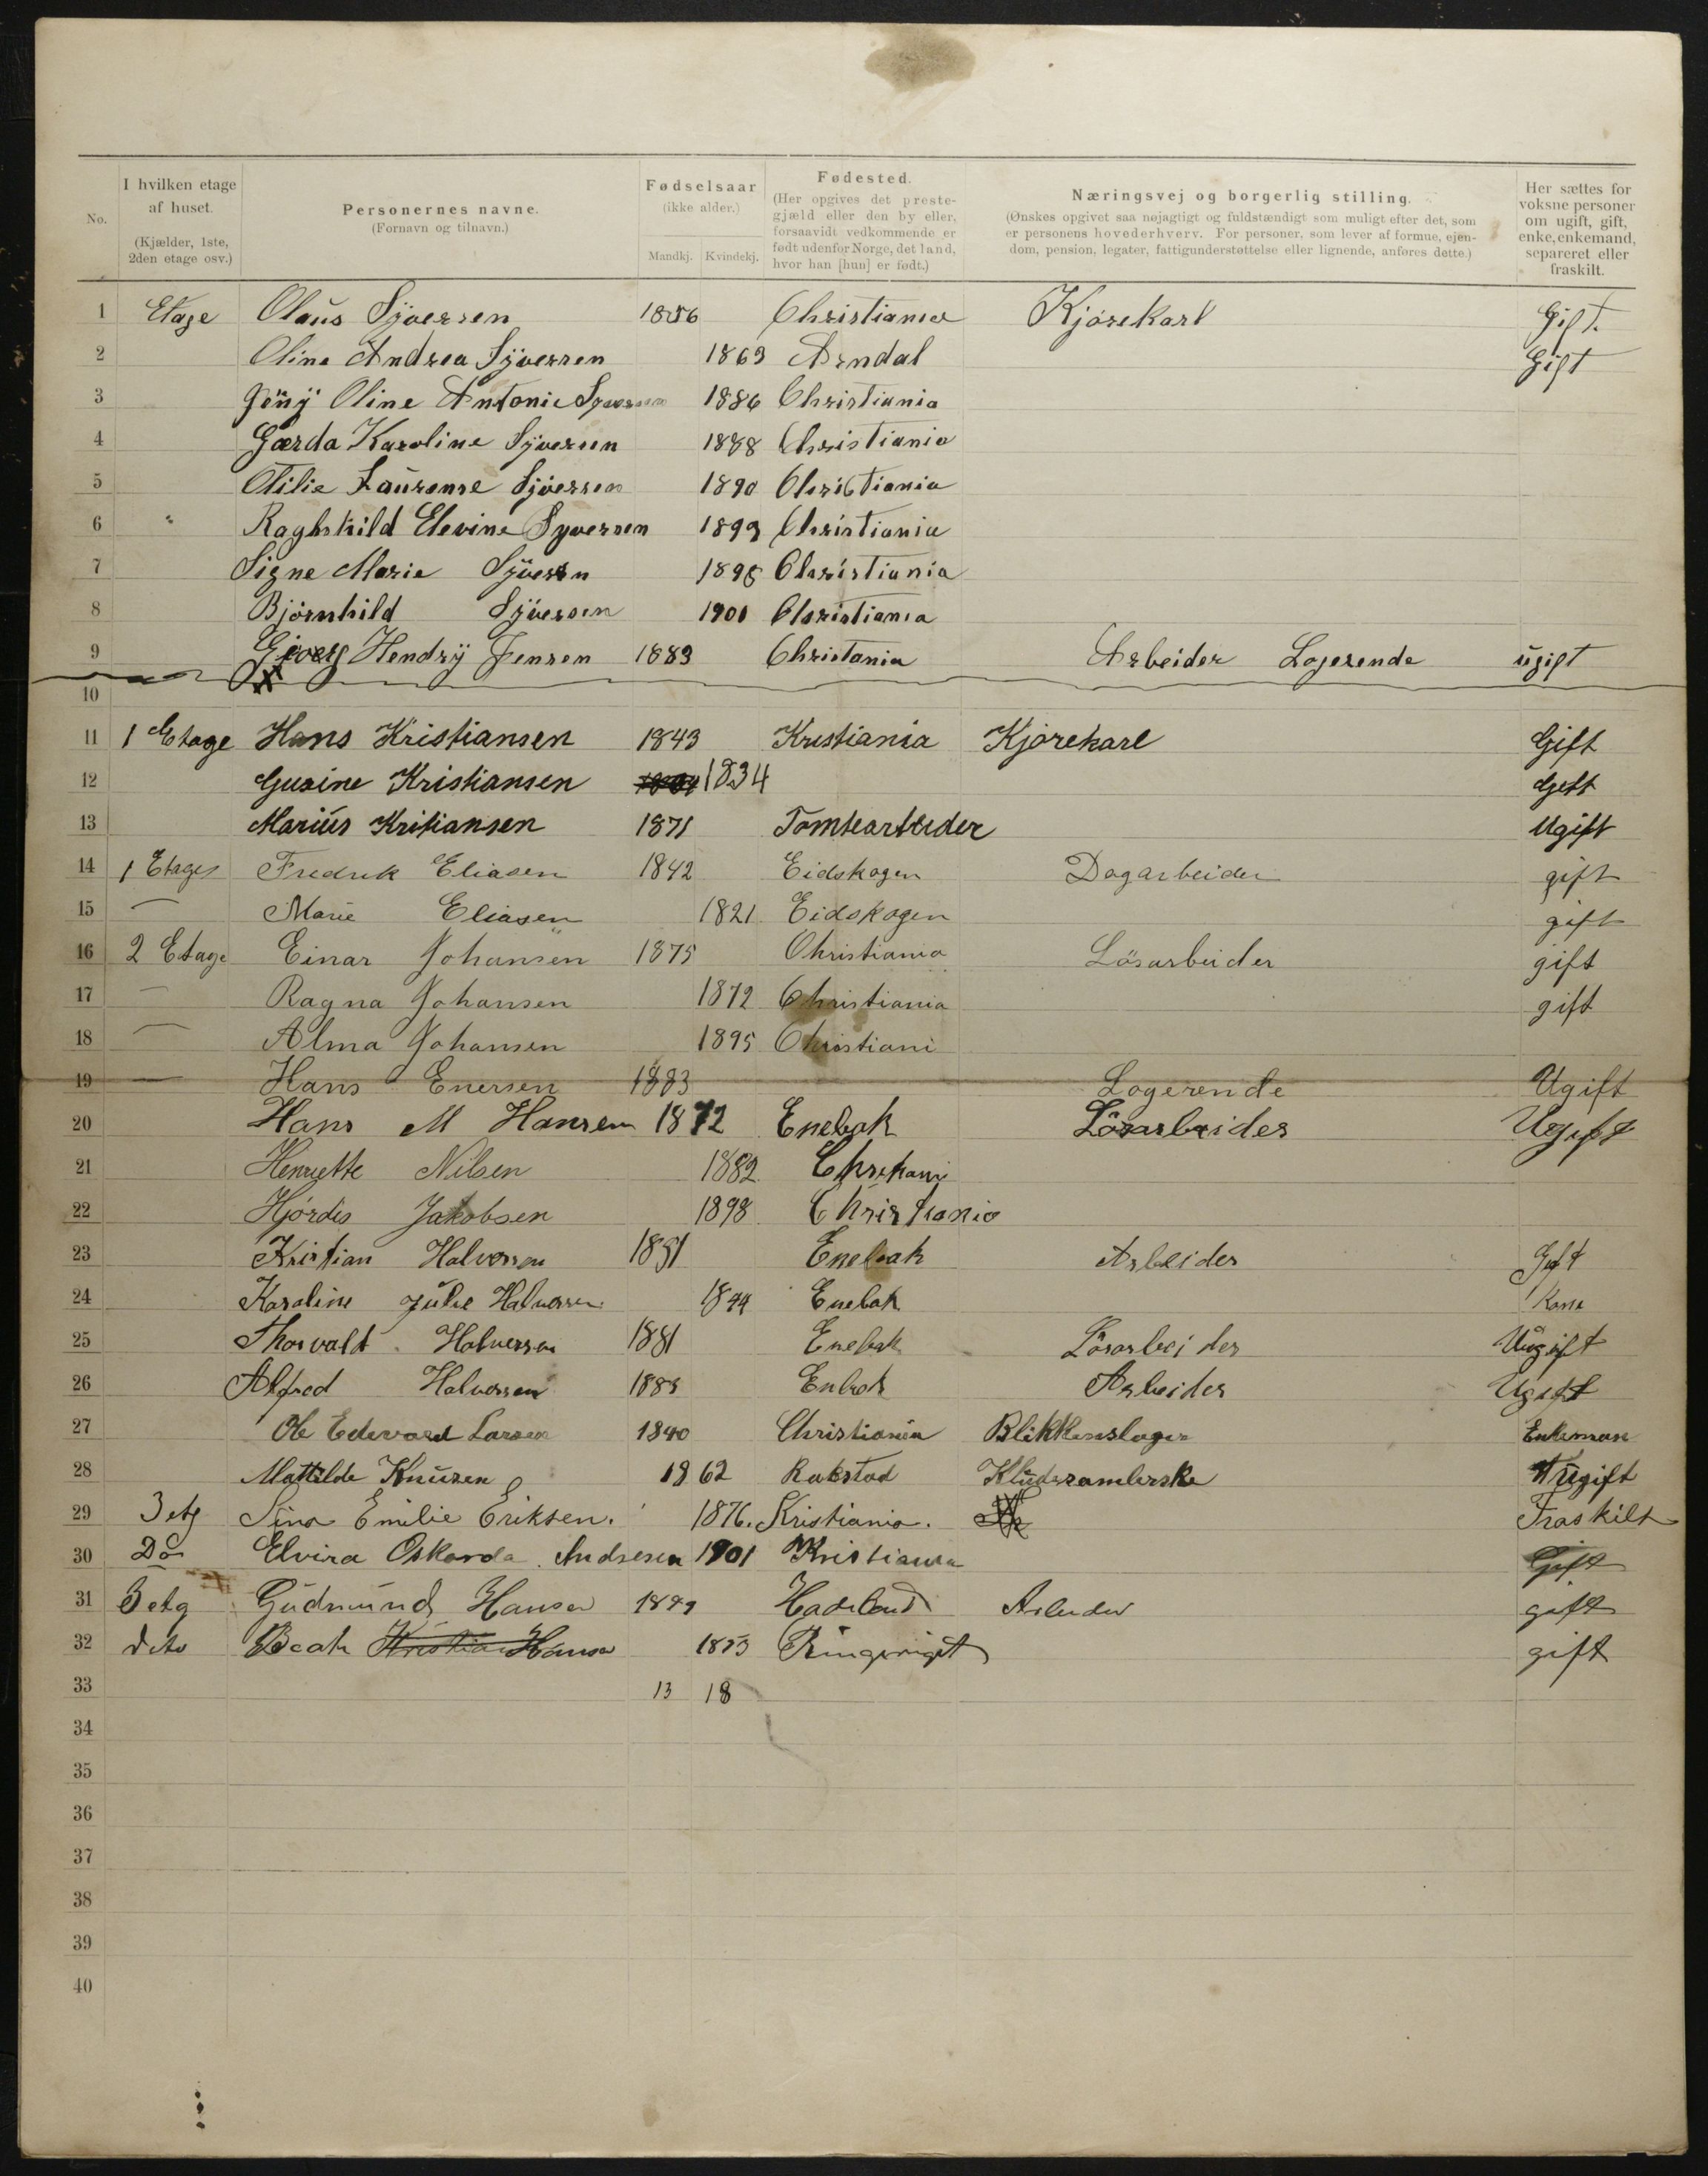 No.
I hvilken etage af huset. (Kjælder, 1ste, 2den etage osv.)
Personernes navne. (Fornavn og tilnavn.)
Fødselsaar (ikke alder.) Mandkj. Kvindekj.
Fødested. (Her opgives det prestegjæld eller den by eller, forsaavidt vedkommende er født udenfor Norge, det land, hvor han [hun] er født.)
Næringsvej og borgerlig stilling. (Ønskes opgivet saa nøjagtigt og fuldstændigt som muligt efter det, som er personens hovederhverv. For personer, som lever af formue, ejendom, pension, legater, fattigunderstøttelse eller lignende, anføres dette.)
Her sættes for voksne personer om ugift, gift, enke, enkemand, separeret eller fraskilt.
1 Etage Olaus Syversen 1856 Christiania Kjørekarl Gift.
2 Oline Andrea Syversen 1863 Arndal Gift
3 Jöny Oline Antonie Syversen 1886 Christiania
4 Gærda Karoline Syversen 1888 Christiania
5 Otilie Laurense Syversen 1890 Christiania
6 " Raghnhild Elevine Syversen 1893 Christiania
7 Signe Marie Syversn 1898 Christiania
8 Bjørnhild Syversen 1901 Christiania
9 Hendry Jensen 1883 Christania Arbeider Logerende ugift
10
11 1 Etage Hans Kristiansen 1843 Kristiania Kjørekarl Gift
12 Gusine Kristiansen 1834 Gift
13 Marius Kritiansen 1871 Tomtearbeider Ugift
14 1 Etages Fredrik Eliasen 1842 Eidskogen Dagarbeider gift
15 — Marie Eliasen 1821 Eidskogen gift
16 2 Etage Einar Johansen 1875 Christiania Løsarbeider gift
17 — Ragna Johansen 1872 Christiania gift
18 — Alma Johansen 1895 Christiani
19 — Hans Enersen 1883 Logerende Ugift
20 Hans M Hansen 1872 Enebak Lösarbeider Ugift
21 Henriette Nilsen 1882
22 Hjördis Jakobsen 1898 Christiania
23 Kristian Halvorsen 1851 Enebak Arbeider Gift
24 Karoline Julie Halvorsen 1844 Enebak Kone
25 Thorvald Halversen 1881 Enebak Lösarbeider Uugift
26 Alfred Halvorsen 1883 Enbak Arbeider Ugift
27 Ole Edevard Larsen 1840 Christiania Blikkenslager Enkeman
28 Mattilde Knusen 1862 Rakstad Kludesamlerske Ugift
29 3 etg Sina Emilie Eriksen. 1876. Kristiania. Fraskilt
30 Do Elvira Oskarda Andresen 1901 Kristiania Gift
31 3 etg Gudmund Hansen 1849 Hadeland Arbeider gift
32 dito Beate Kristian Hansen 1853 Ringeriget gift
33 13 18
34
35
36
37
38
39
40